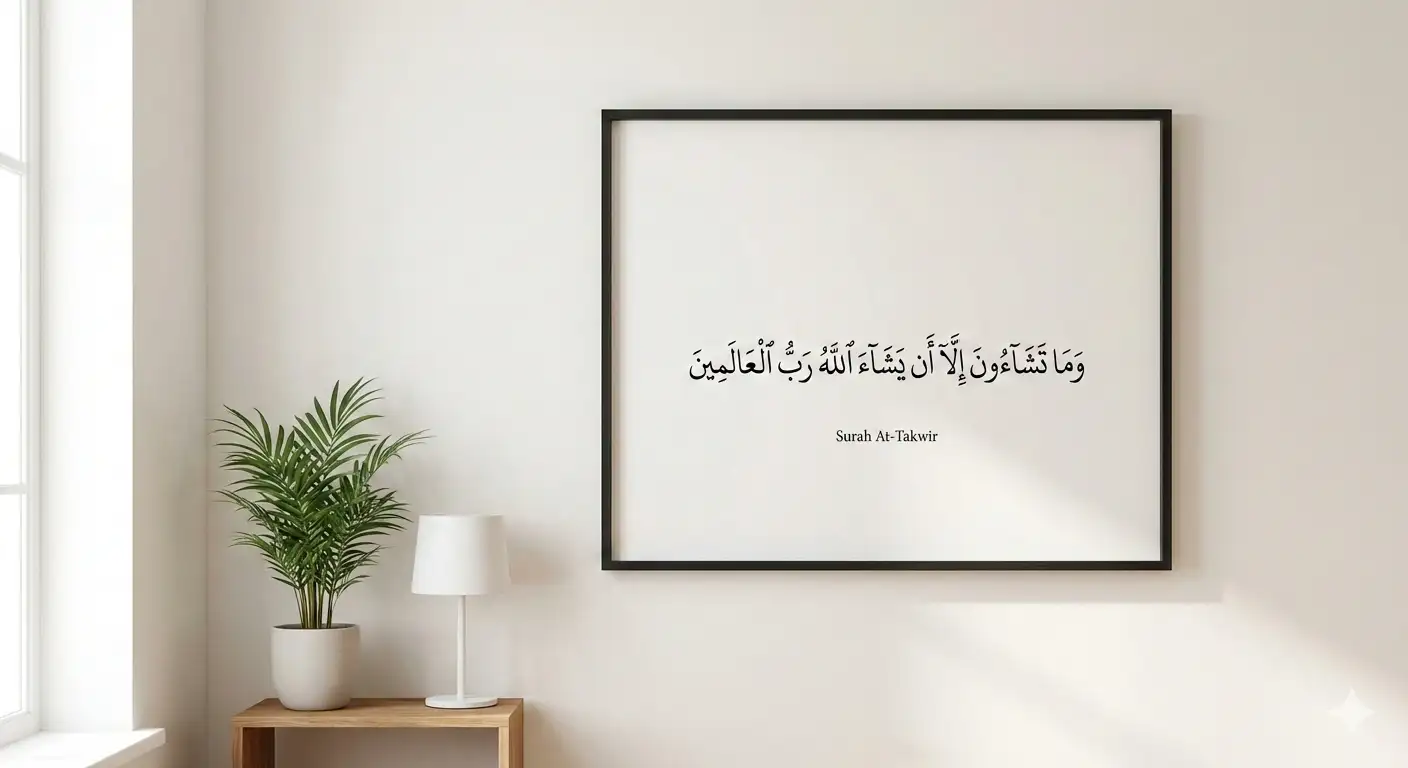 وَمَا تَشَآءُونَ إِلَّآ أَن يَشَآءَ ٱللَّهُ رَبُّ ٱلْعَالَمِينَ
Surah At-Takwir